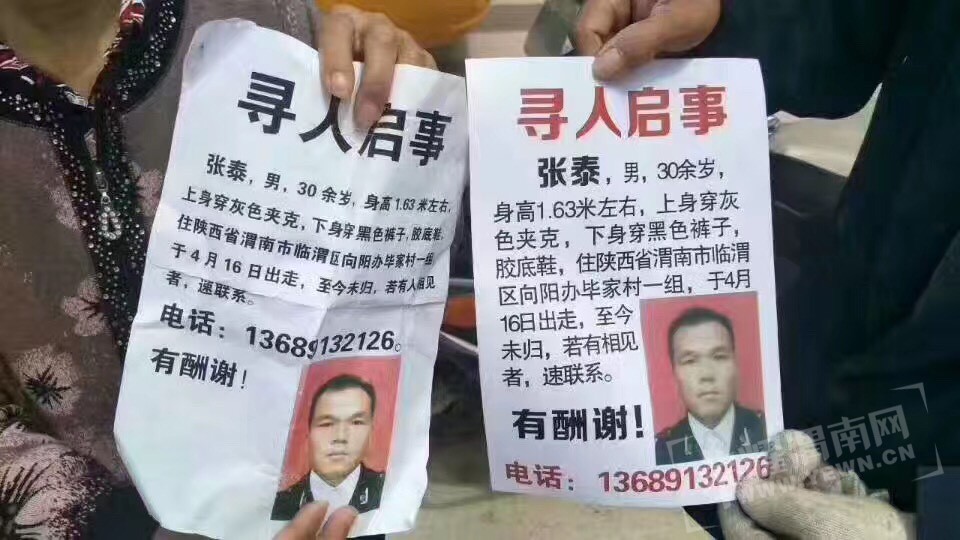 寻人启事
张泰，男，30余岁，身高1.63米左右，
上身穿灰色夹克，下身穿黑色裤子，胶底鞋，
住陕西省渭南市临渭区向阳办毕家村一组
于4月16日出走，至今未归，若有人相见
者，速联系。
电话：13689132126。
有酬谢！
寻人启事
张泰，男，30余岁，
身高1.63米左右，上身穿灰
色夹克，下身穿黑色裤子，
胶底鞋，住陕西省渭南市临渭
区向阳办毕家村一组，于4月
16日出走，至今
未归，若有相见
者，速联系。
有酬谢！
电话：13689132126
渭南网
WN.CN